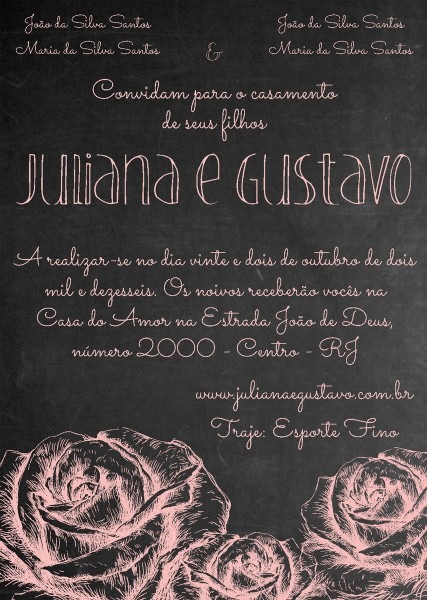 João da Silva Santos
Maria da Silva Santos
&
João da Silva Santos
Maria da Silva Santos
Convidam para o casamento
de seus filhos
Juliana e Gustavo
A realizar-se no dia vinte e dois de outubro de dois
mil e dezesseis. Os noivos receberão vocês na
Casa do Amor na Estrada João de Deus,
número 2000 - Centro - RJ
www.julianaegustavo.com.br
Traje: Esporte Fino